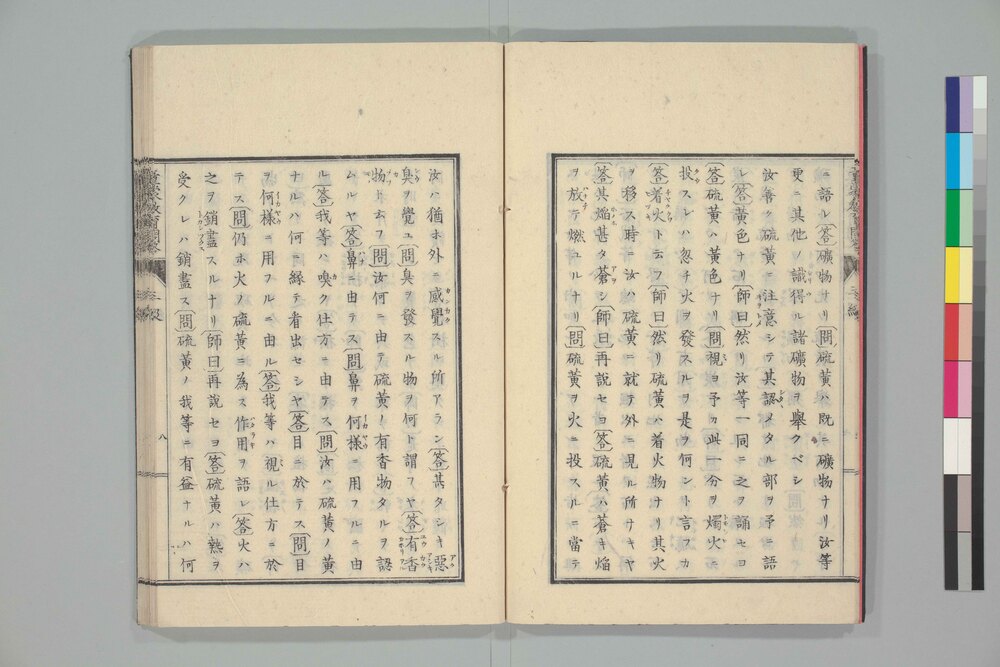 ニ語レ答礦物ナリ問硫黄ハ既ニ礦物ナリ汝等
更ニ其他ノ識得ル諸礦物ヲ舉クベシ
汝善ク硫黄ニ注意シテ其認メタル部ヲ予ニ語
レ答黄色ナリ師曰然リ汝等一同ニ之ヲ誦セヨ
答硫黄ハ黄色ナリ問視ヨ予カ此一分ヲ燭火ニ
投スレハ忽チ火ヲ發スルヲ是ヲ何ント言フカ
答着火トス云フ師曰然リ硫黄ハ着火物ナリ其火
ヲ移ス時ニ汝ハ硫黄ニ就テ外ニ見ル所ナキヤ
答其焔甚タ蒼シ師曰再説セヨ答硫黄ハ蒼キ焔
ヲ放テ燃ユルナリ問硫黄ヲ火ニ投スルニ當テ
汝ハ猶ホ外ニ感覺スル所アラン答甚タシキ惡
臭ヲ覺ユ問臭ヲ發スル物ヲ何ト謂フヤ答有香
物ト云フ問汝何ニ由テ硫黄ノ有香物タルヲ認
ムルヤ答鼻ニ由テス問鼻ヲ何様ニ用フルニ由
ル答我等ハ嗅ク仕方ニ由テス問汝ハ硫黄ノ黄
ナルハ何ニ縁テ看出セシヤ答目ニ於テス問目
ヲ何様ニ用フルニ由ル答我等ハ視ル仕方ニ於
テス問仍ホ火ノ硫黄ニ為ス作用ヲ語レ答火ハ
之ヲ銷盡スルナリ師曰再説セヨ答硫黄ハ熱ヲ
受クレハ銷盡ス問硫黄ノ我等ニ有益ナルハ何
八